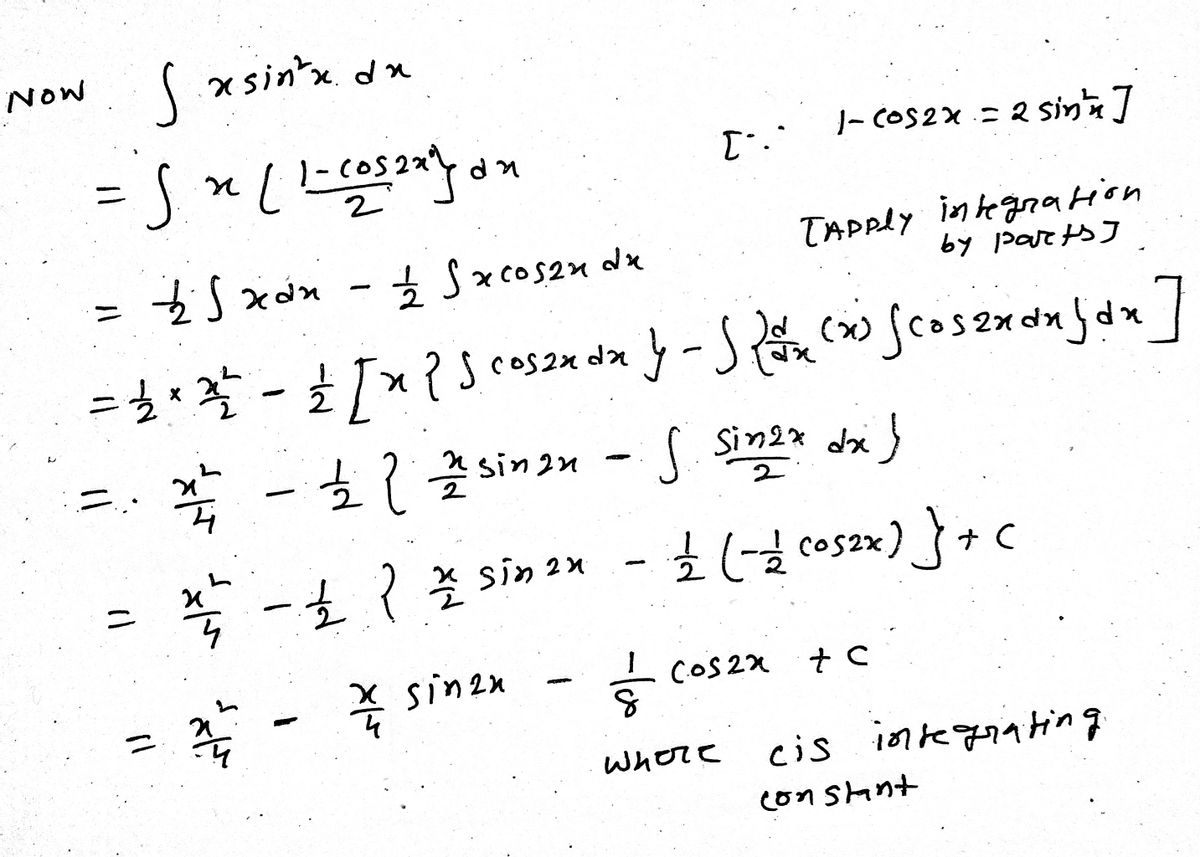 NOW ∫ x sin²x. dx
= ∫ x { (1-cos2x)/2 } dx [∵ 1-cos2x = 2 sin²x]
= 1/2 ∫ x dx - 1/2 ∫ x cos2x dx [APPly integration by parts]
= 1/2 × x²/2 - 1/2 [x {∫ cos2x dx } - ∫ {d/dx (x) ∫ cos2x dx} dx ]
= x²/4 - 1/2 { x/2 sin2x - ∫ sin2x/2 dx }
= x²/4 - 1/2 { x/2 sin2x - 1/2 (-1/2 cos2x) } + C
= x²/4 - x/4 sin2x - 1/8 cos2x + C
where c is integrating
constant